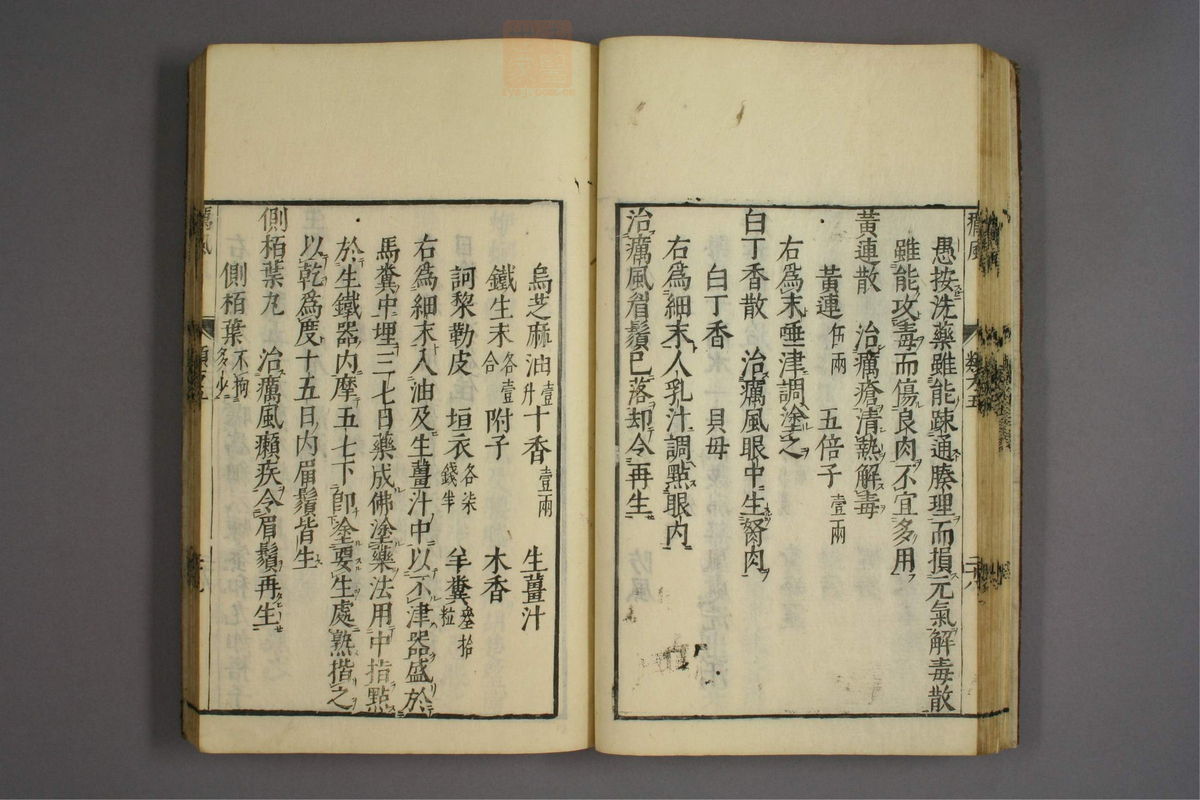 愚按洗藥雖能疎通腠理而損元氣解毒散
雖能攻毒而傷良肉不宜多用
黃連散　治癘瘡清熱解毒
黃連伍兩　五倍子壹兩
右爲末唾津調塗之
白丁香散　治癘風眼中生胬肉
白丁香　貝母
右爲細末人乳汁調點眼內
治癘風眉鬚已落却令再生
烏芝麻油壹升　丁香壹兩　生薑汁
鐵生末各壹合　附子　木香
訶黎勒皮　垣衣各柒錢半　羊糞叄拾粒
右爲細末入油及生薑汁中以不津器盛於
馬糞中埋三七日藥成佛塗藥法用中指點
於生鐵器內摩五七下卽塗要生處熟揩之
以乾爲度十五日內眉鬚皆生
側栢葉丸　治癘風癩疾令眉鬚再生
側栢葉不拘多少